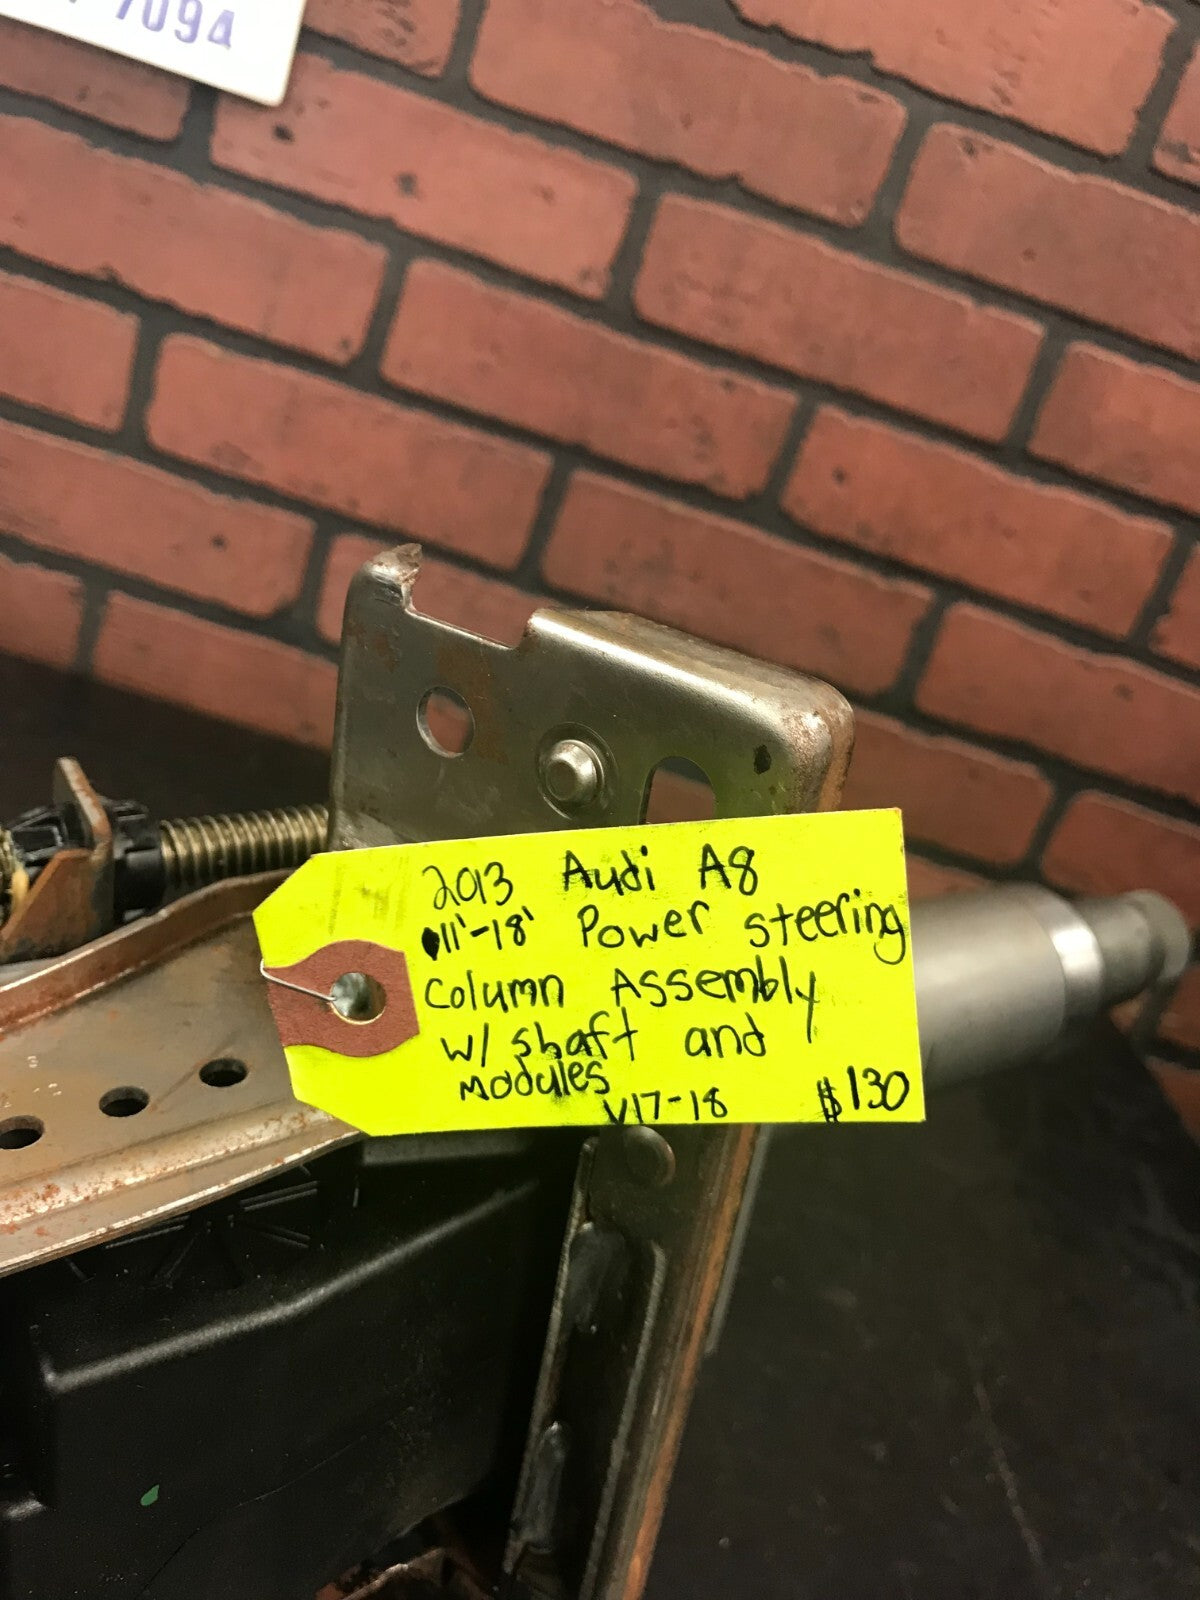 7094
2013 Audi A8
11'-18' Power steering
Column Assembly
w/ shaft and
Modules
V17-18 $130